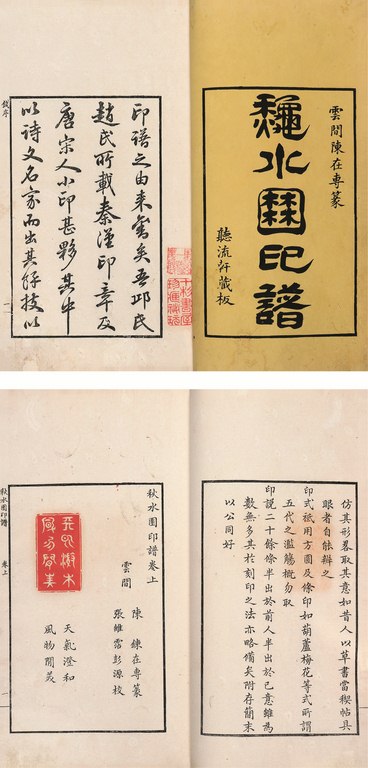 雲間陳在專篆
龝水園印譜
聽流軒藏板
印譜之由來舊矣吾邱氏
趙氏所載秦漢印章及
唐宋人小印甚夥其中
以詩文名家而出其餘技以
錢序
仿其形畧取其意如昔人以草書當稧帖具
眼者自能辦之
印式祗用方圓及條印如葫蘆梅花等式所謂
五代之濫觴概勿取
印說二十餘條半出於前人半出於己意雖為
數無多其於刻印之法亦略備矣附存簡末
以公同好
秋水園印譜卷上
雲間
陳鍊在專篆
張維霑彭源校
天氣澄和
風物閒美
秋水園印譜 卷上 一